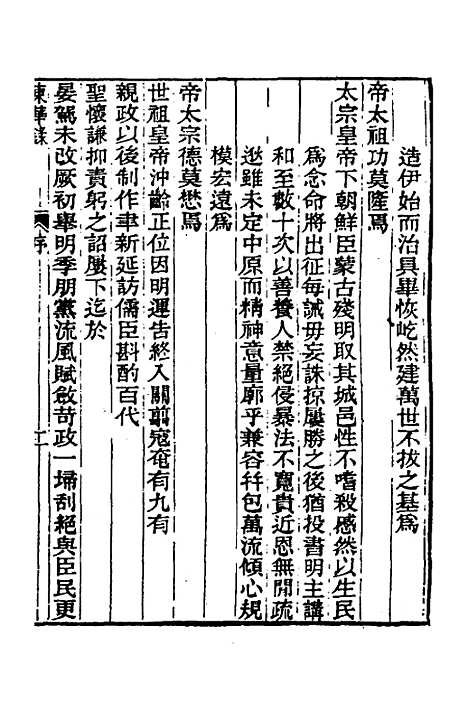 造伊始而治具畢恢屹然建萬世不拔之基爲
帝太祖功莫隆焉
太宗皇帝下朝鮮臣蒙古殘明取其城邑性不嗜殺慼然以生民
爲念命將出征每誡毋妄誅掠屢勝之後猶投書明主講
和至數十次以善養人禁絕侵暴法不寬貴近恩無閒疏
逖雖未定中原而精神意量廓乎兼容幷包萬流傾心規
模宏遠爲
帝太宗德莫懋焉
世祖皇帝沖齡正位因明運告終入關翦寇奄有九有
親政以後制作聿新延訪儒臣斟酌百代
聖懷謙抑責躬之詔屢下迄於
晏駕未改厥初舉明季朋黨流風賦斂苛政一埽刮絕與臣民更
東華錄 序 二